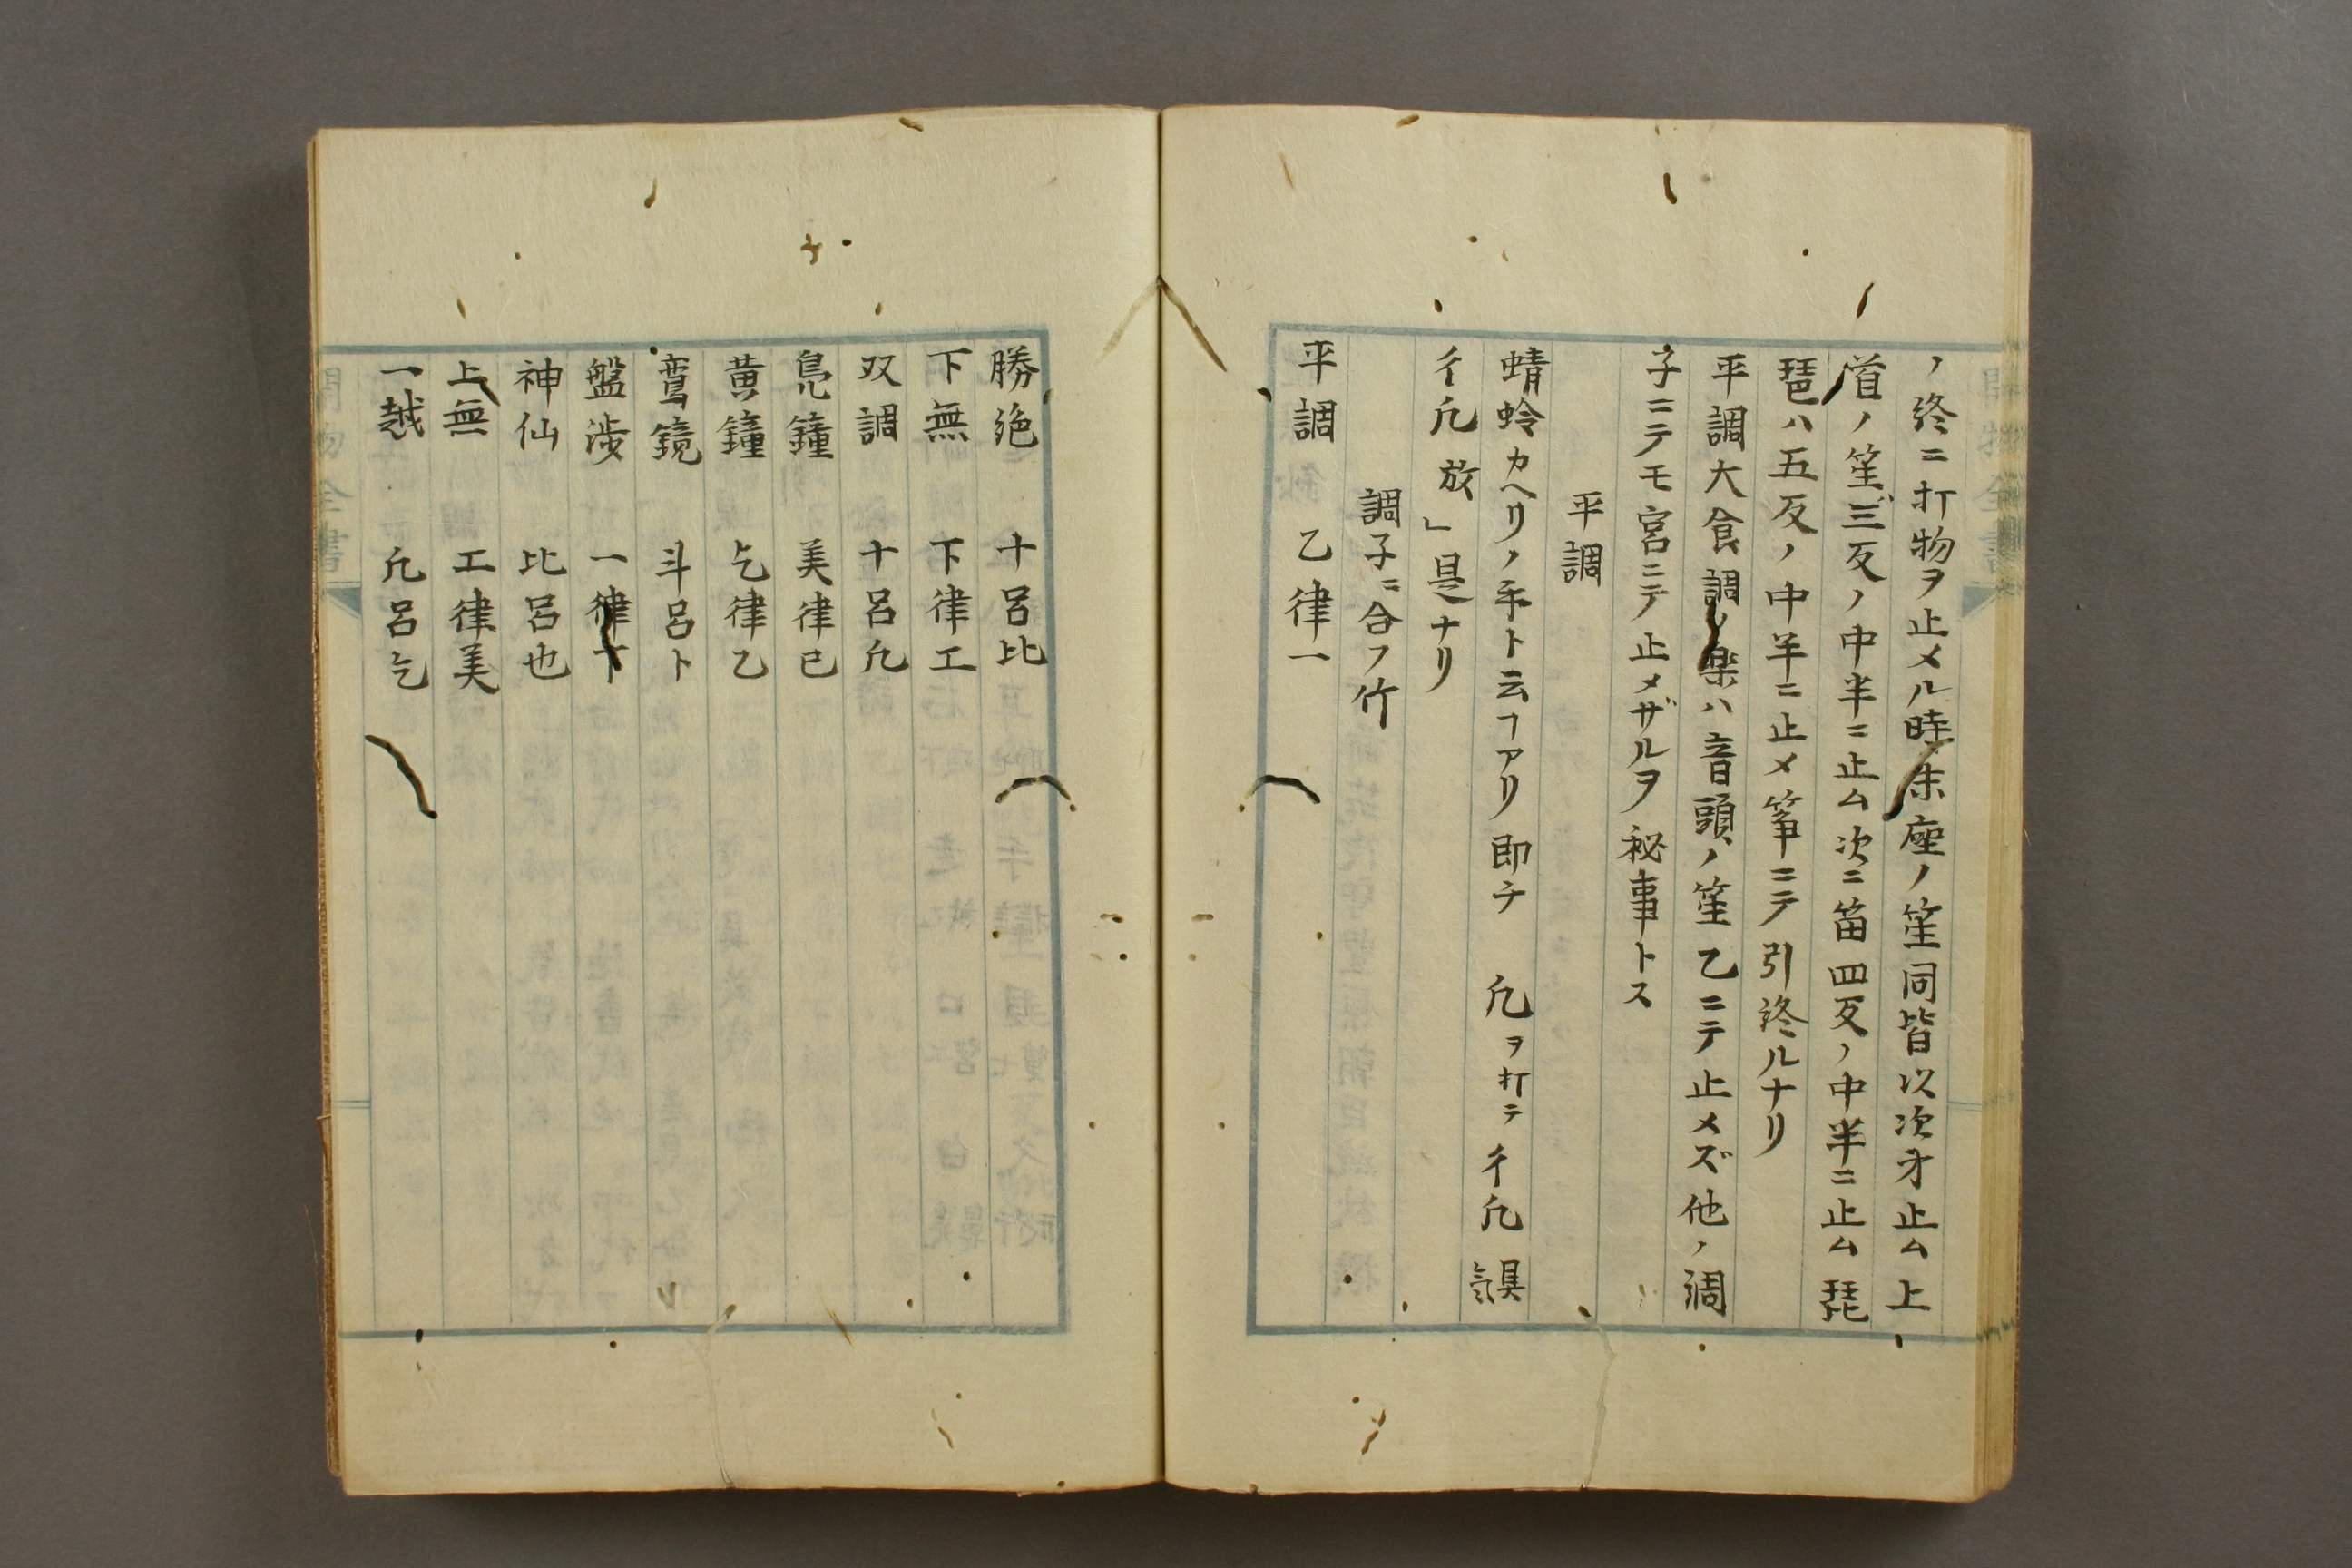 ノ終ニ打物ヲ止メル時末座ノ笙同皆以次才止ム上
首ノ笙ﾞ三反ノ中半ニ止ム次ニ笛四反ノ中半ニ止ム琵
琶ハ五反ノ中半ニ止メ筝ニテ引終ルナリ
平調大食調ノ楽ハ音頭ノ笙乙ニテ止メズ他ノ調
子ニテモ宮ニテ止メザルヲ秘事トス
平調
蜻蛉カヘリノ手ト云フアリ即チ 凢ヲ打テ彳凢
彳凢放」是ナリ
調子ニ合フ竹
平調 乙律一
勝絶 十呂比
下無 下律工
双調 十呂凢
鳧鐘 美律已
黄鐘 乞律乙
鸞鏡 斗呂ト
盤渉 一律下
神仙 比呂也
上無 工律美
一越 凢呂乞